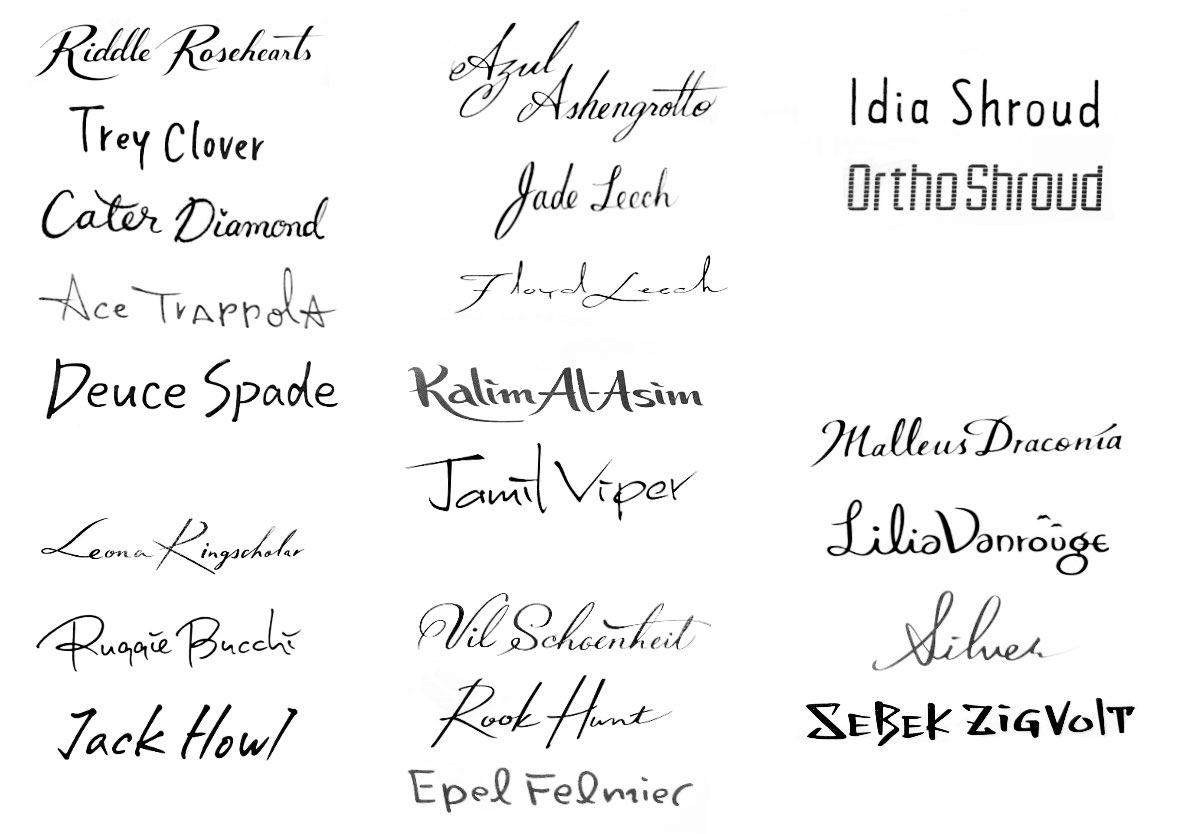 Riddle Rosehearts
Trey Clover
Cater Diamond
Ace Trappola
Deuce Spade
Leona Kingscholar
Ruggie Bucchi
Jack Howl
Azul
Ashengrotto
Jade Leech
Floyd Leech
Kalim Al-Asim
Jamil Viper
Vil Schoenheit
Rook Hunt
Epel Felmier
Idia Shroud
Ortho Shroud
Malleus Draconia
Lilia Vanrouge
Silver
SEBEK ZiGVolT